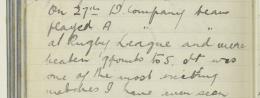 On 27th D Company team
played A " "
at Rugby League and were
beaten 9 points to 5. It was
one of the most exciting
matches I have ever seen